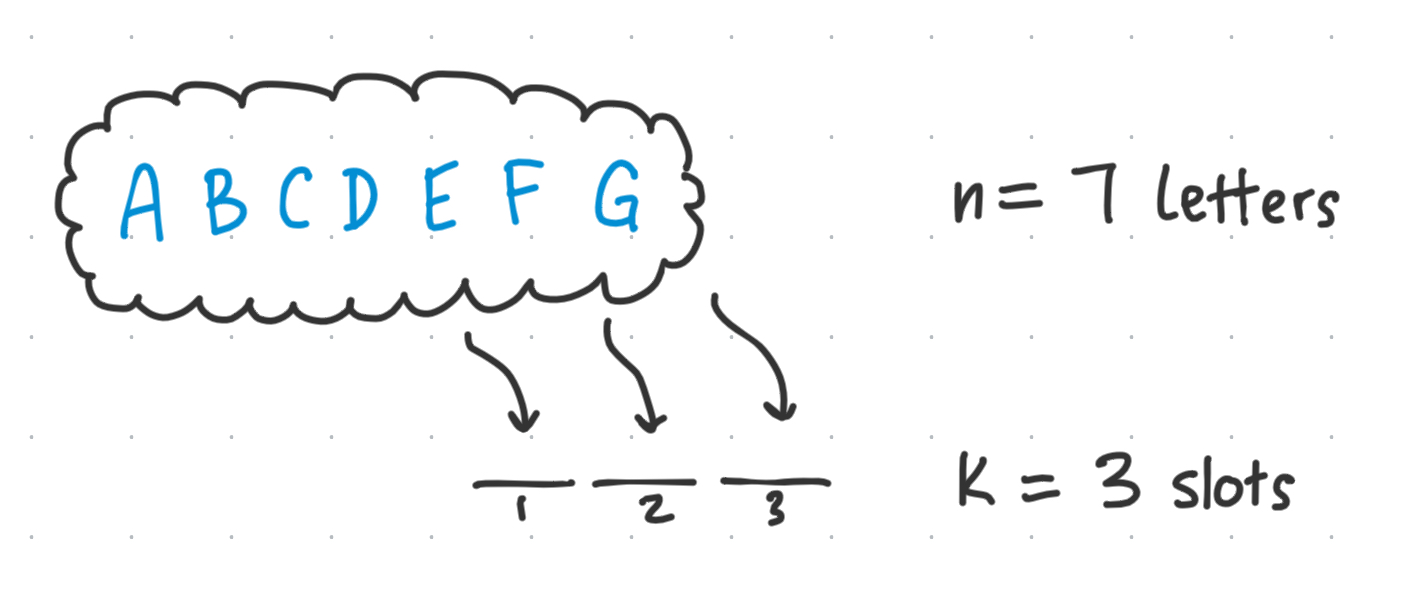 A B C D E F G
n = 7 letters
1 2 3
K = 3 slots